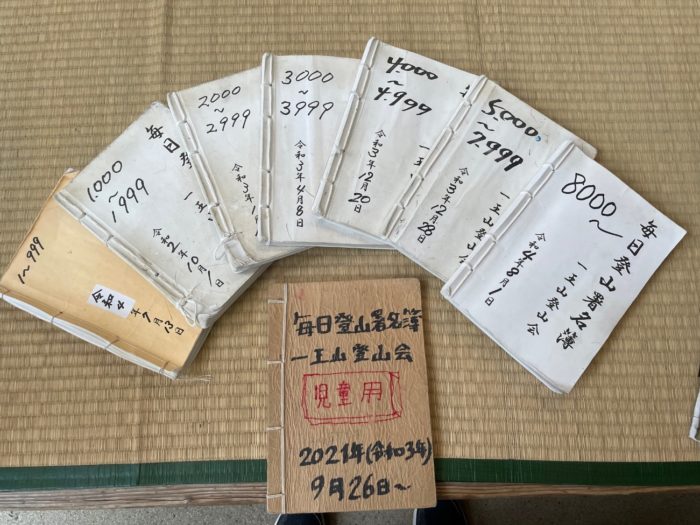 1~999
令和4年7月13日
1000
~
1999
令和2年10月1
2000
~
2999
毎日
一王山
3000
~
3999
令和3年4月8日
4.000
~
4.999
令和3年12月20
5.000.
~
7.999
一王山登山会
令和3年12月28
8000~
毎日登山署名簿
一王山登山会
令和4年8月1
毎日登山署名簿
一王山登山会
児童用
2021年(令和3年)
9月26日~